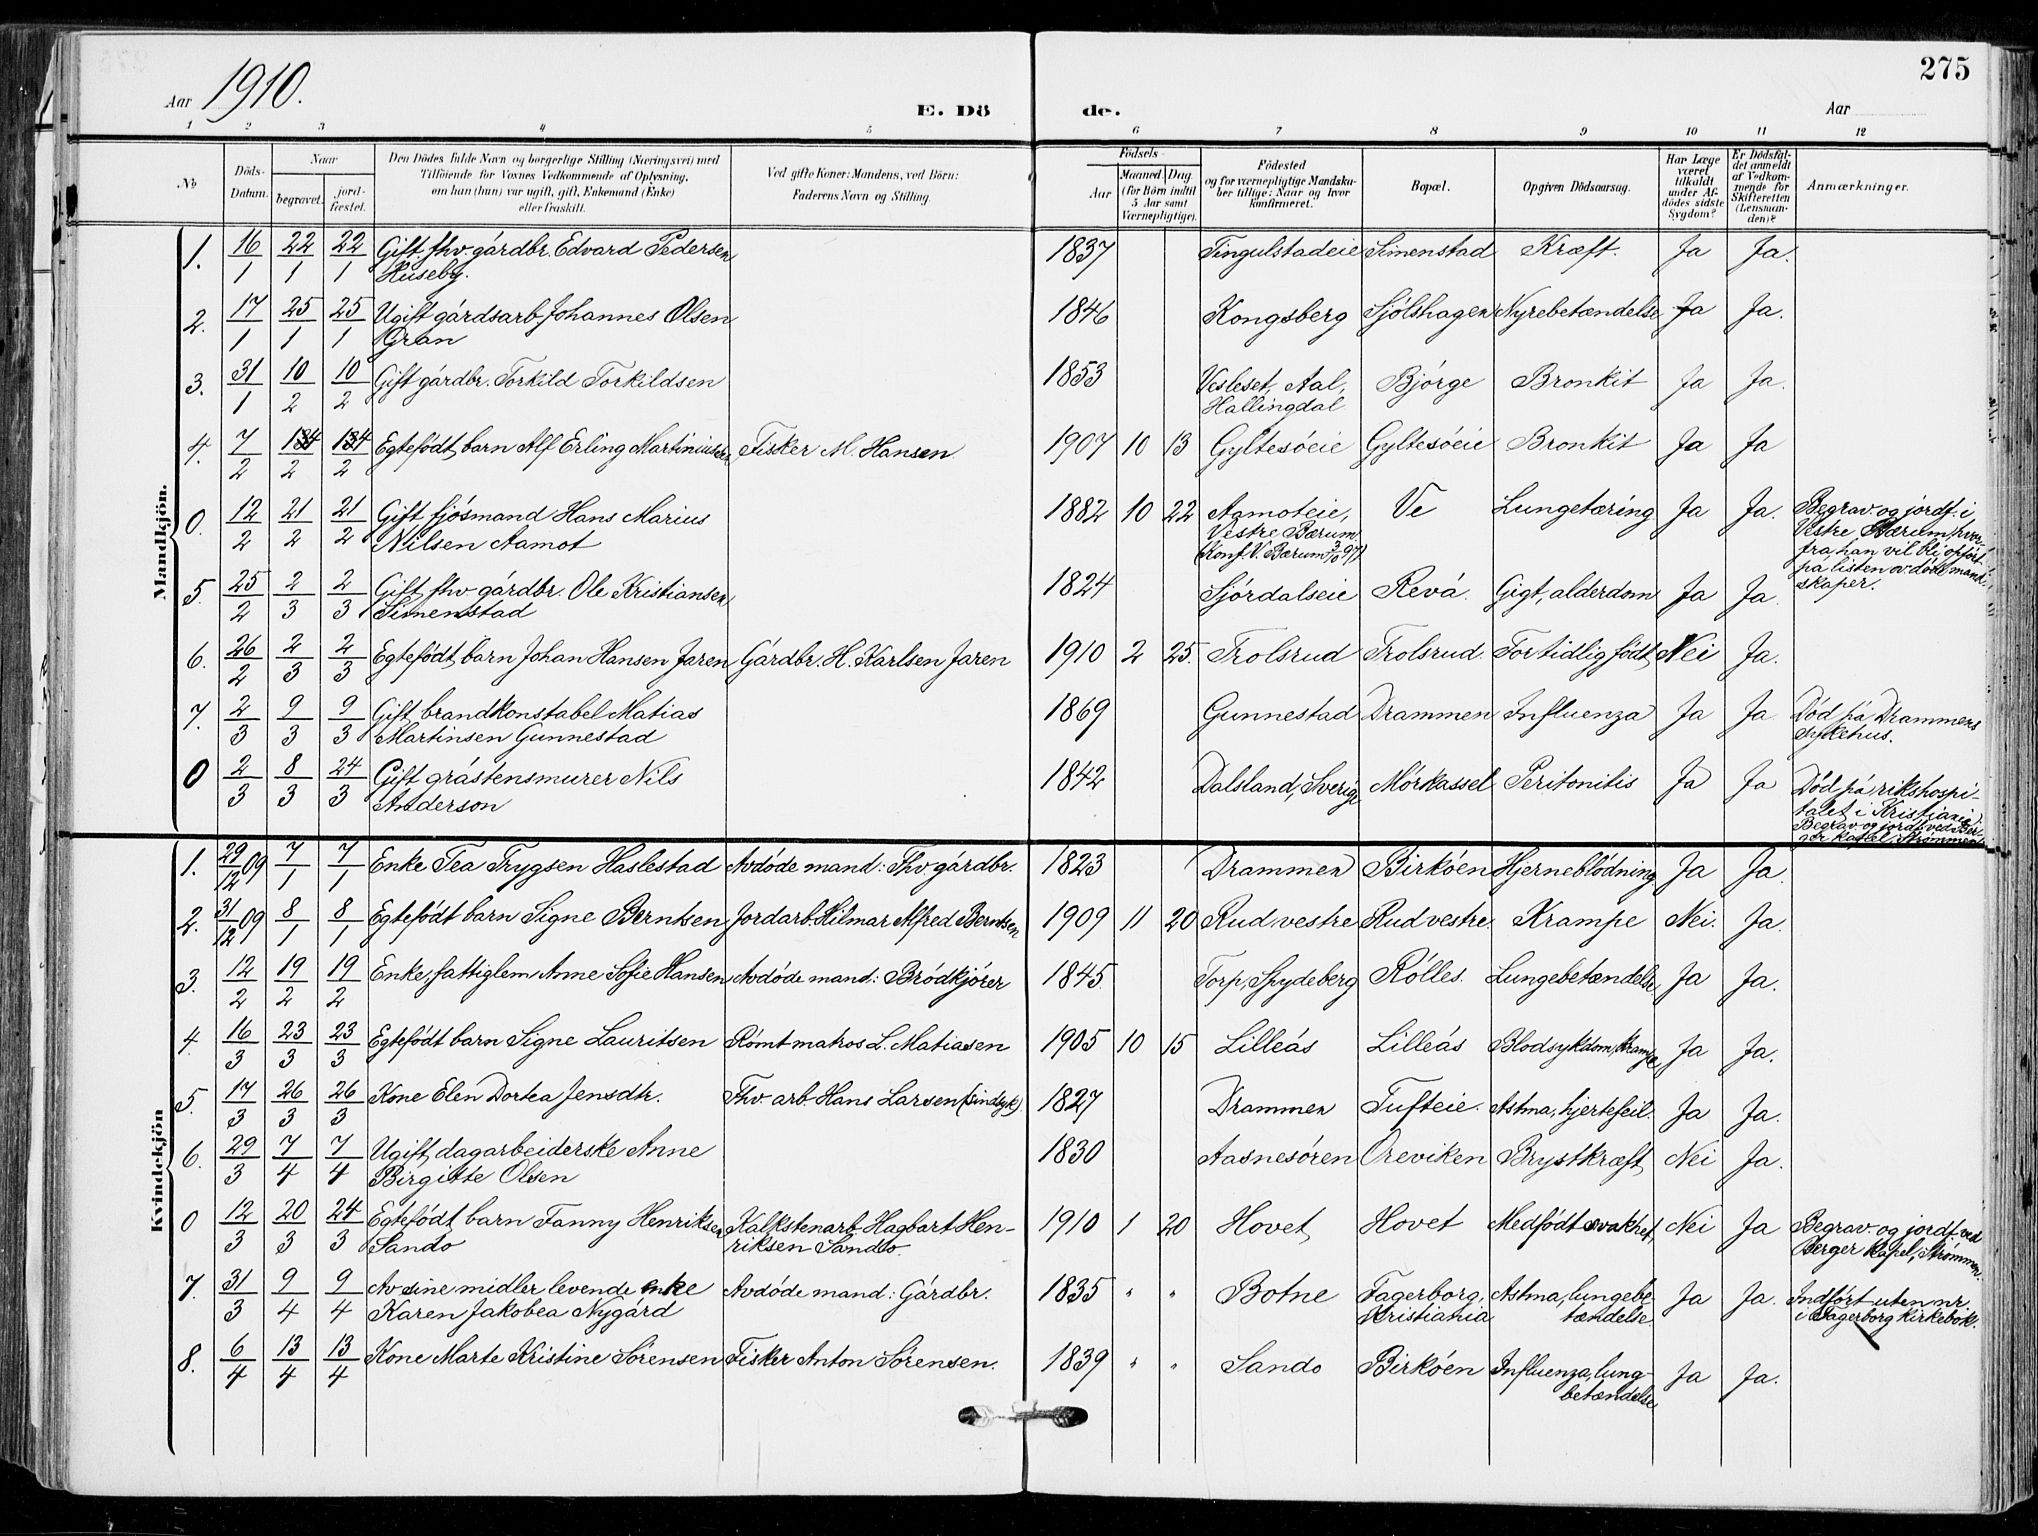 275
Aar 1910.
E. Dö de.
Aar
1 2 3 4 5 6 7 8 9 10 11 12
No
Döds-Datum.
Naar
begravet.
jord-fæstet.
Den Dödes fulde Navn og borgerlige Stilling (Næringsvei) med
Tilföiende for Voxnes Vedkommende af Oplysning,
om han (hun) var ugift, gift, Enkemand (Enke)
eller fraskilt.
Ved gifte Koner: Mandens, ved Börn:
Faderens Navn og Stilling.
Födsels-
Aar
Maaned. Dag.
(for Börn indtil
5 Aar samt
Værnepligtige).
Födested
og for værnepligtige Mandska-
ber tillige: Naar og hvor
konfirmeret.
Bopæl.
Opgiven Dödsaarsag.
Har Læge
været
tilkaldt
under Af-
dödes sidste
Sygdom?
Er Dödsfal-
det anmeldt
af Vedkom-
mende for
Skifteretten
(Lensman-
den)?
Anmærkninger.
Mandkjön.
1. 16/1 22/1 22/1 Gift fhv. gårdbr. Edvard Pedersen 1837 Tingulstadeie Simenstad Kræft. Ja Ja.
Huseby.
2. 17/1 25/1 25/1 Ugift gårdsarb. Johannes Olsen 1846 Kongsberg Sjölshagen Nyrebetændelse Ja Ja.
Gran
3. 31/1 10/2 10/2 Gift gårdbr. Torkild Torkildsen 1853 Vesleset, Aal, Bjórge Bronkit Ja Ja.
Hallingdal
4. 7/2 14/2 14/2 Egtefödt barn Alf Erling Martiniussen Fisker M. Hansen. 1907 10 13 Gyltesóeie Gyltesóeie Bronkit Ja Ja
0. 12/2 21/2 21/2 Gift fjósmand Hans Marius 1882 10 22 Aamoteie, Ve Lungetæring Ja Ja. Begrav. og jordf. i
Nilsen Aamot Vestre Bærum. Vestre Bærum, hvor-
(Konf. V. Bærum 3/10 97) fra han vil bli opfört
på listen ov. döde mand-
skaper.
5. 25/2 2/3 2/3 Gift fhv gårdbr. Ole Kristiansen 1824 Sjórdalseie Revå. Gigt, alderdom Ja Ja.
Simenstad
6. 26/2 2/3 2/3 Egtefödt barn Johan Hansen Jaren Gårdbr. H. Karlsen Jaren 1910 2 25. Trolsrud Trolsrud. For tidlig födt Nei Ja.
7. 2/3 9/3 9/3 Gift brandkonstabel Matias 1869 Gunnestad Drammen Influenza Ja Ja Död på Drammens
Martinsen Gunnestad sykehus.
0 2/3 8/3 24/3 Gift gråstensmurer Nils 1842 Dalsland, Sverige Mórkassel Peritonitis Ja Ja Död på rikshospi-
Anderson talet i Kristiania.
Begrav. og jordf. ved Ber-
ger kapel, Strømmen
Kvindekjön
1. 29/12 09 7/1 7/1 Enke Tea Trygsen Haslestad Avdöde mand: Fhv. gårdbr. 1823 Drammen Birköen Hjerneblödning Ja Ja.
2. 31/12 09 8/1 8/1 Egtefödt barn Signe Berntsen Jordarb. Hilmar Alfred Berntsen 1909 11 20 Rud vestre Rud vestre. Krampe Nei. Ja.
3. 12/2 19/2 19/2 Enke, fattiglem Anne Sofie Hansen Avdöde mand: Brödkjörer 1845 Torp, Spydeberg Rólles. Lungebetændelse Ja Ja.
4. 16/3 23/3 23/3 Egtefödt barn Signe Lauritsen Römt matros L. Matiasen 1905 10 15 Lilleås Lilleås Blodsykdom, Krampe Ja Ja.
5. 17/3 26/3 26/3 Kone Elen Dortea Jensdtr. Fhv. arb. Hans Larsen (sindsyk) 1827 Drammen Tufteie. Astma, hjertefeil. Ja Ja.
6. 29/3 7/4 7/4 Ugift dagarbeiderske Anne 1830 Aasnesóren Oreviken Brystkræft Nei Ja.
Birgitte Olsen
0 12/3 20/3 24/3 Egtefödt barn Fanny Henriksen Kalkstenarb. Hagbart Hen- 1910 1 20 Hovet Hovet Medfödt svakhet Nei Ja Begrav. og jordf. ved
Sando riksen Sando. Berger kapel, Strømmen.
7. 31/3 9/4 9/4 Av sine midler levende enke Avdöde mand: Gårdbr. 1835 " " Botne Fagerborg, Astma, lungebe- Ja Ja. Indfört uten nr.
Karen Jakobea Nygård Kristiania tændelse. i Fagerborg kirkebok.
8. 6/4 13/4 13/4 Kone Marte Kristine Sörensen Fisker Anton Sörensen. 1839 " " Sando Birköen Influenza, lung- Ja Ja.
betændelse